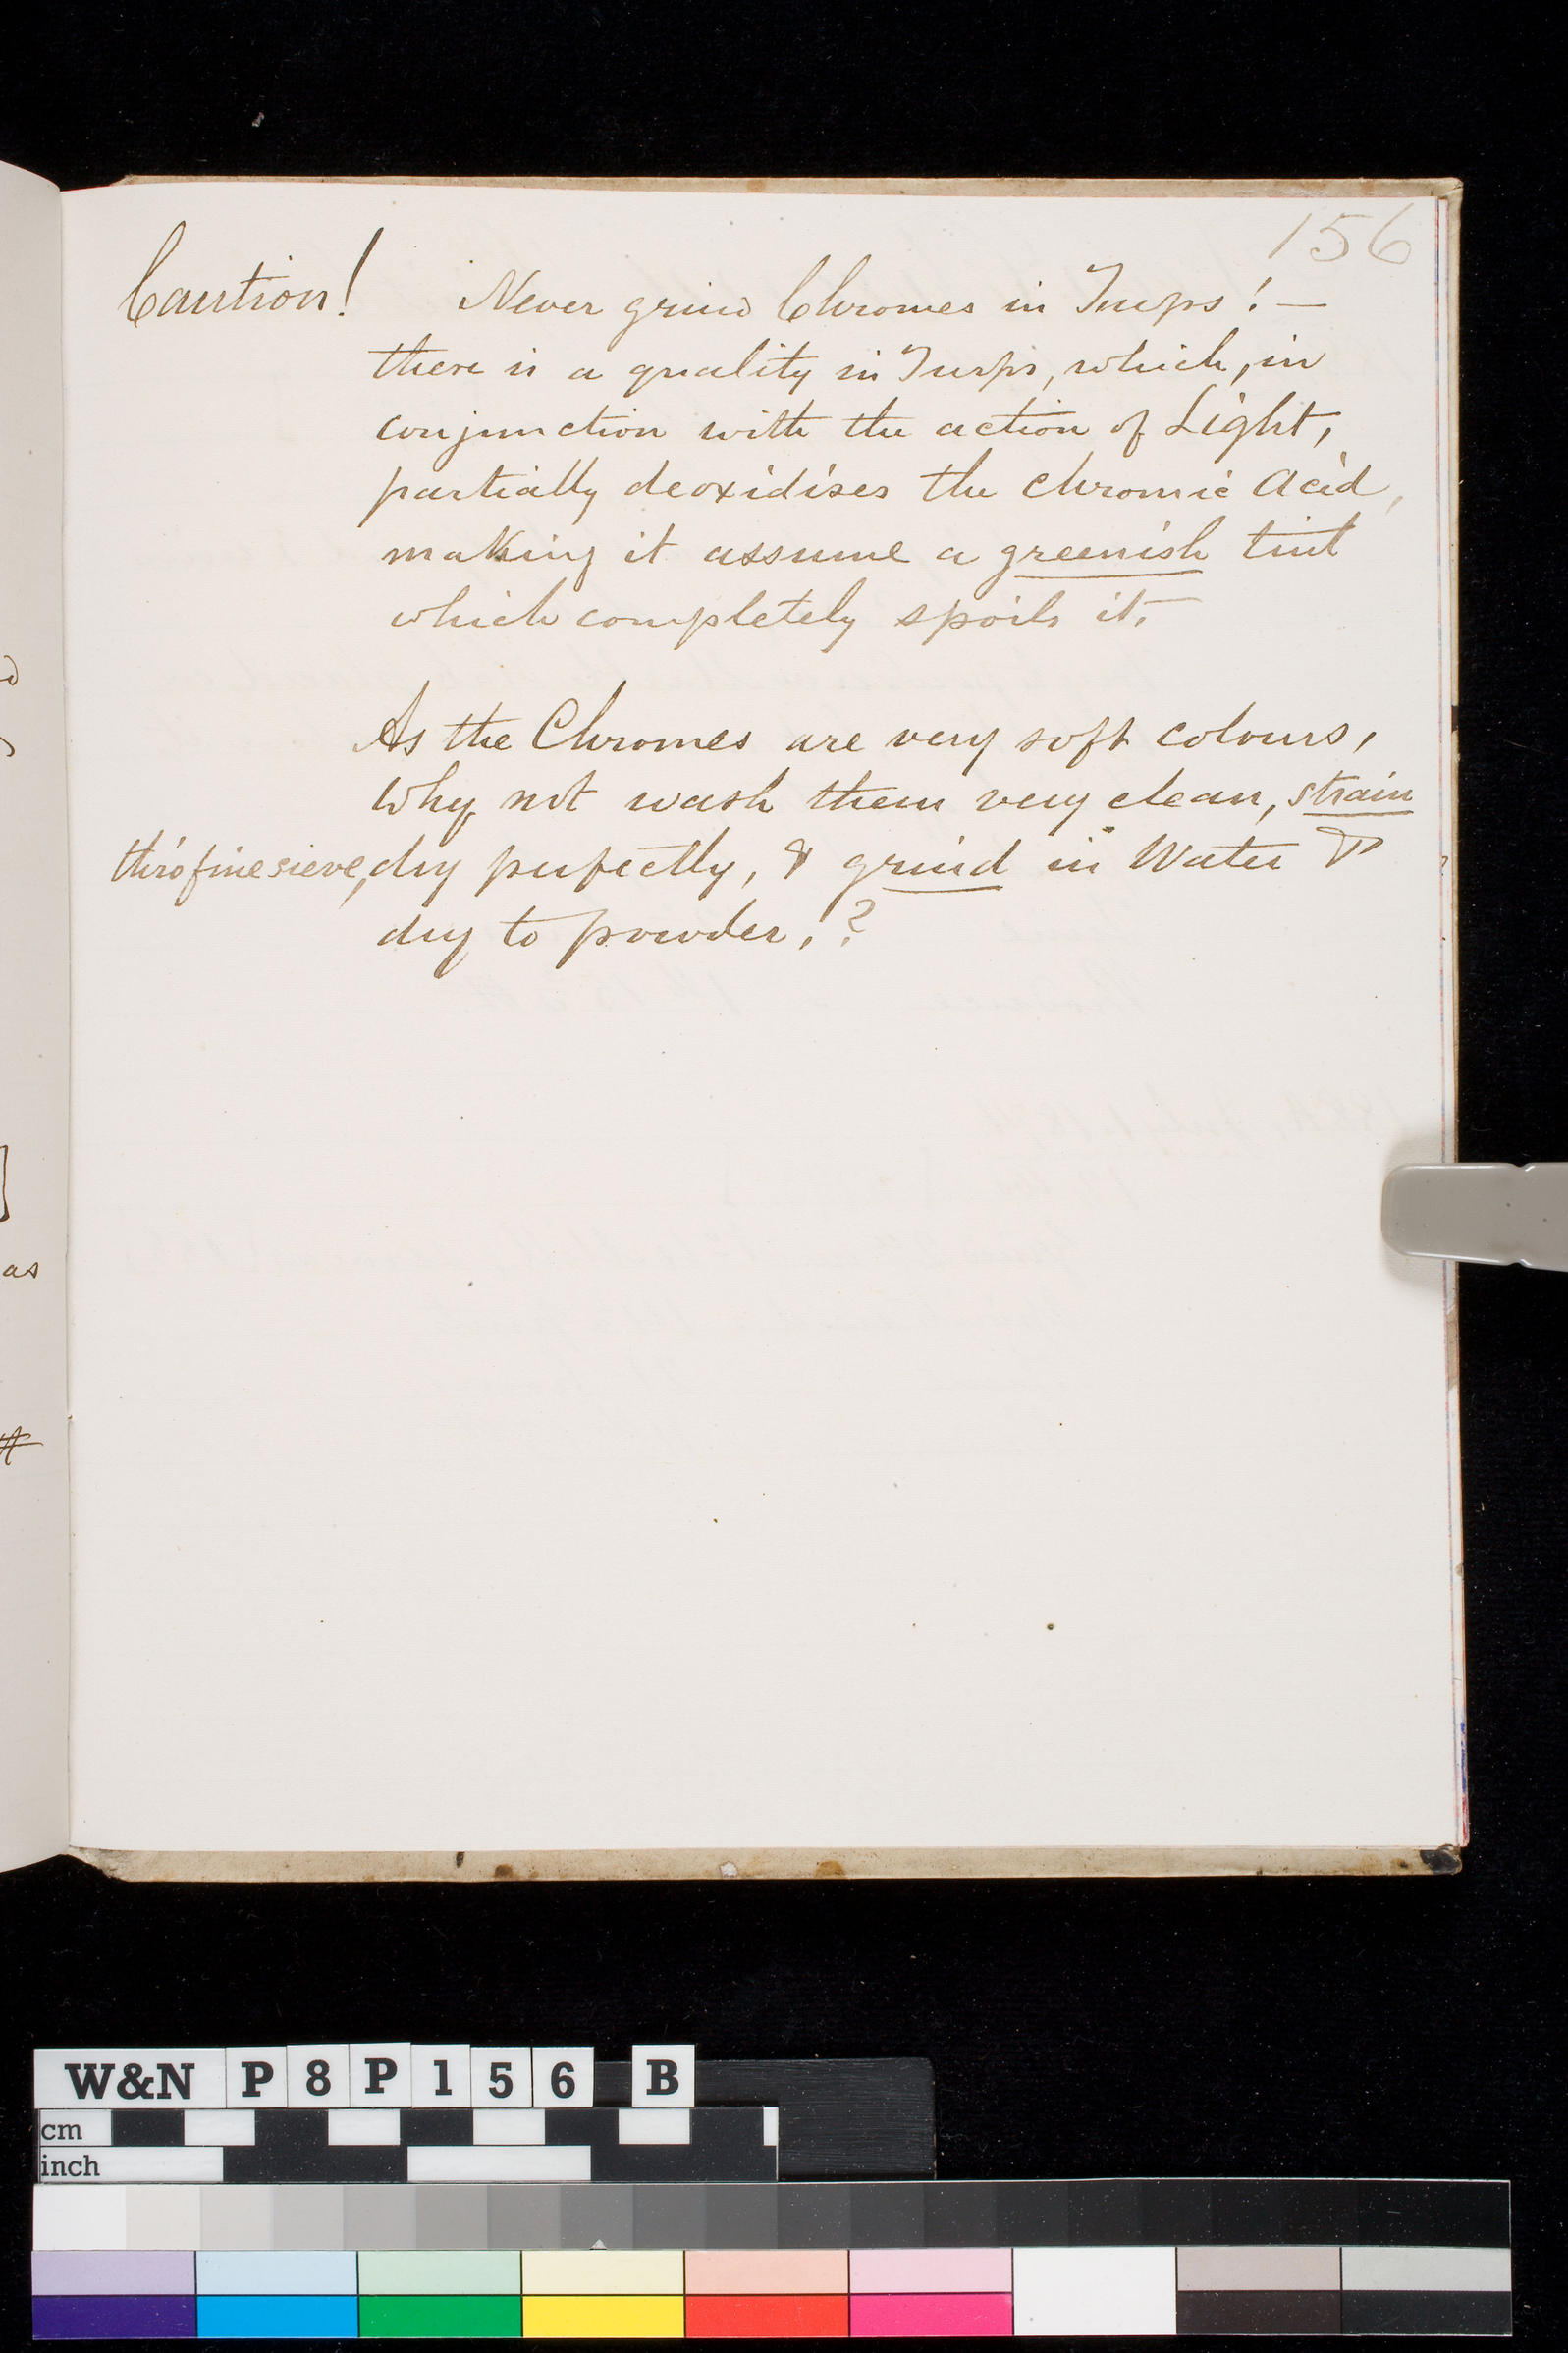 156
Caution! Never grind Chromes in Turps! —
there is a quality in Turps, which, in
conjunction with the action of Light,
partially deoxidises the Chromic Acid,
making it assume a greenish tint
which completely spoils it.—
As the Chromes are very soft colours,
Why not wash them very clean, strain
thro' fine sieve, dry perfectly, & grind in Water &
dry to powder. ?
as
W&N P8P156 B
cm
inch